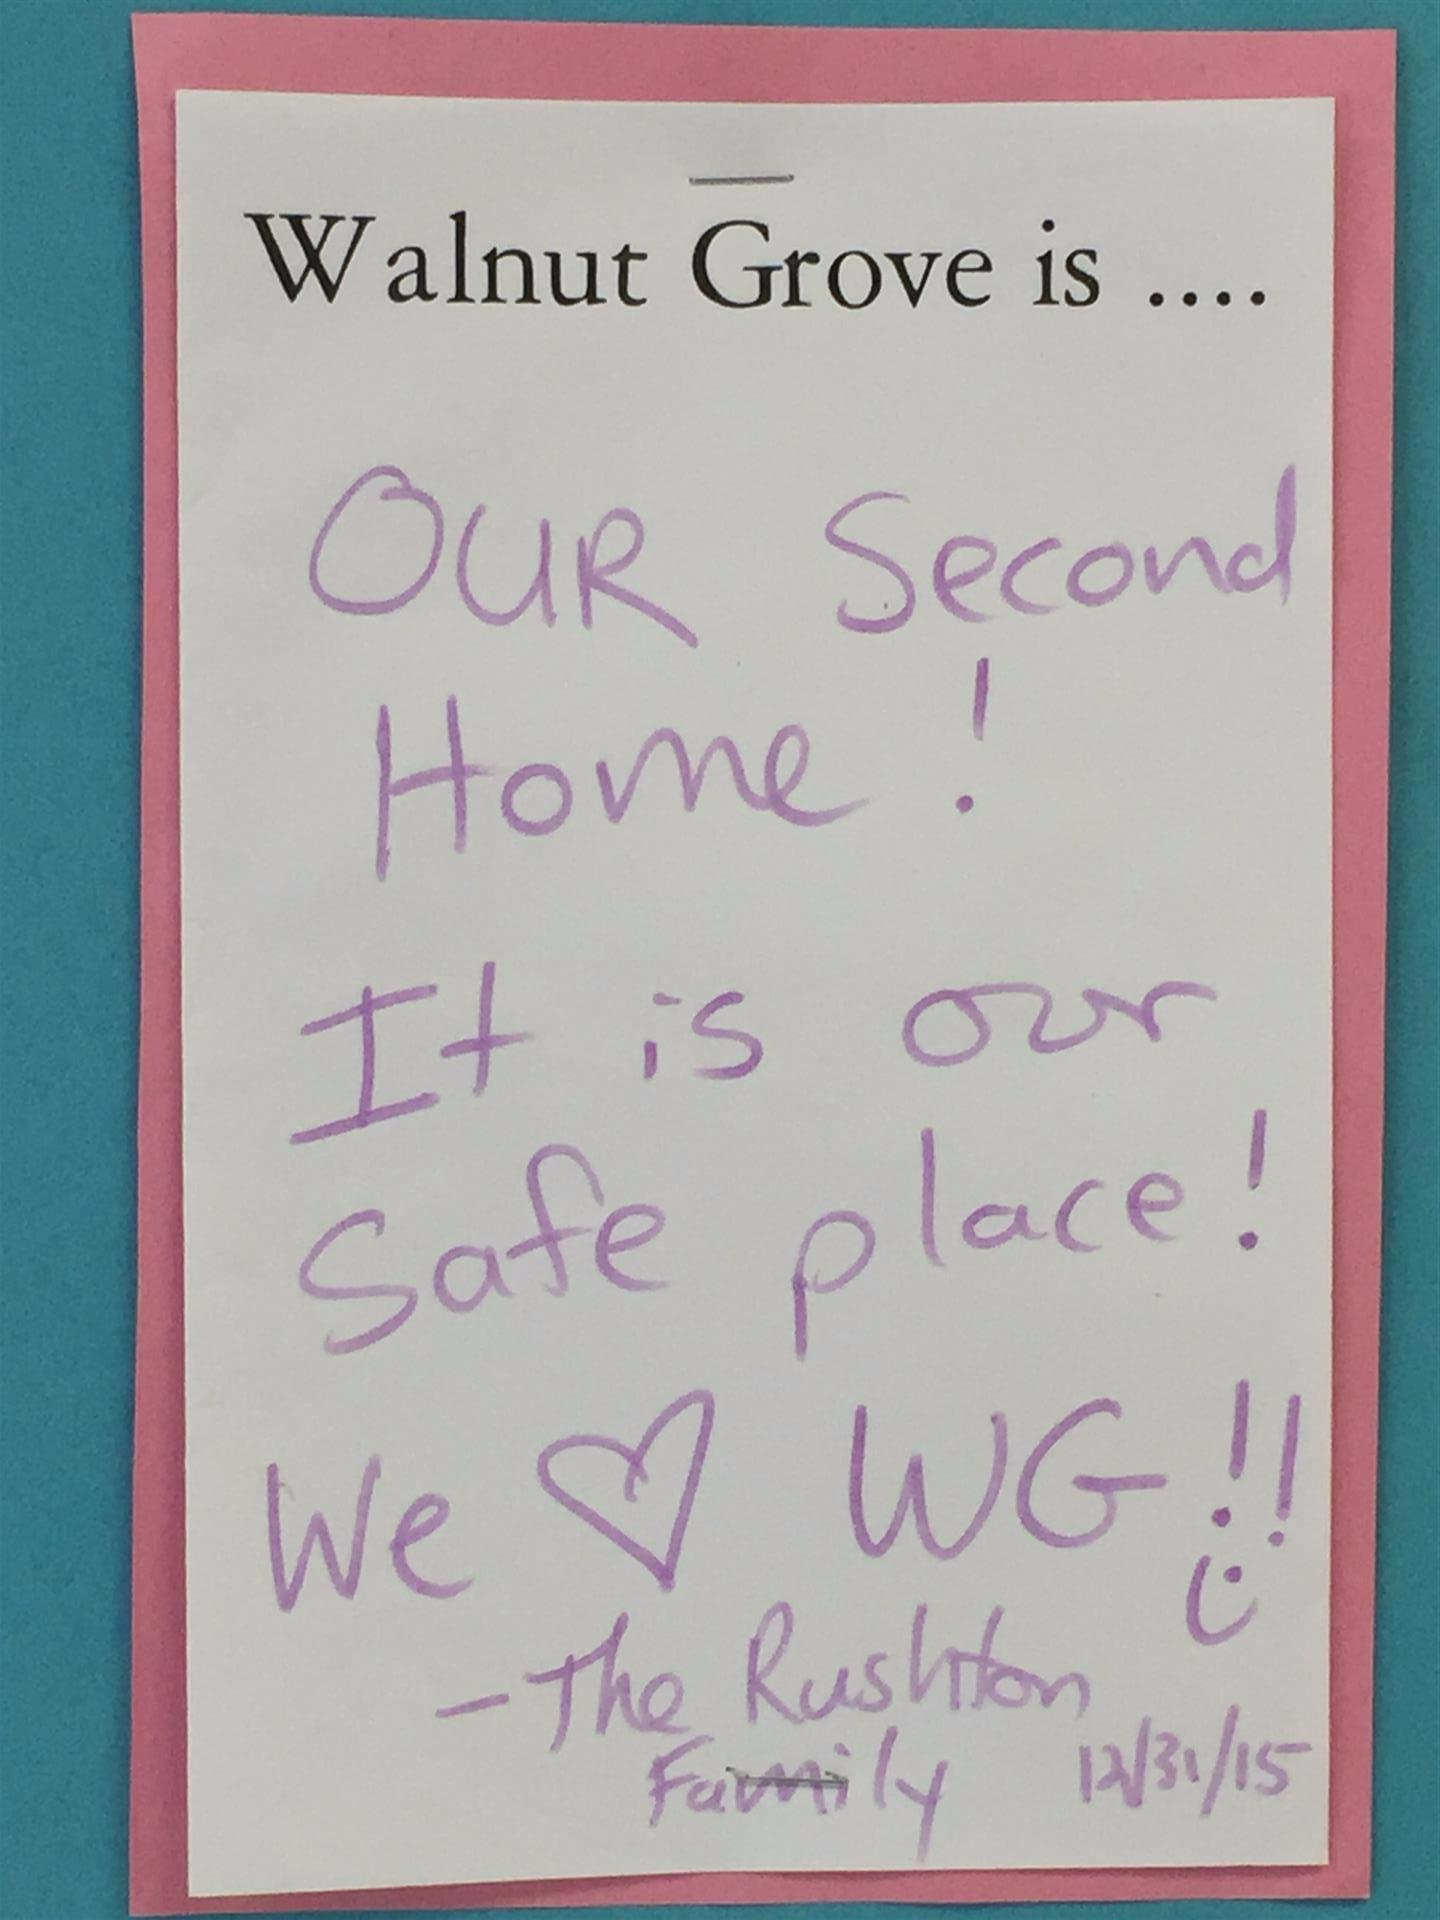 Walnut Grove is ....
OUR Second
Home!
It is our
Safe place!
We ♡ WG!!
- The Rushton
Family 12/31/15